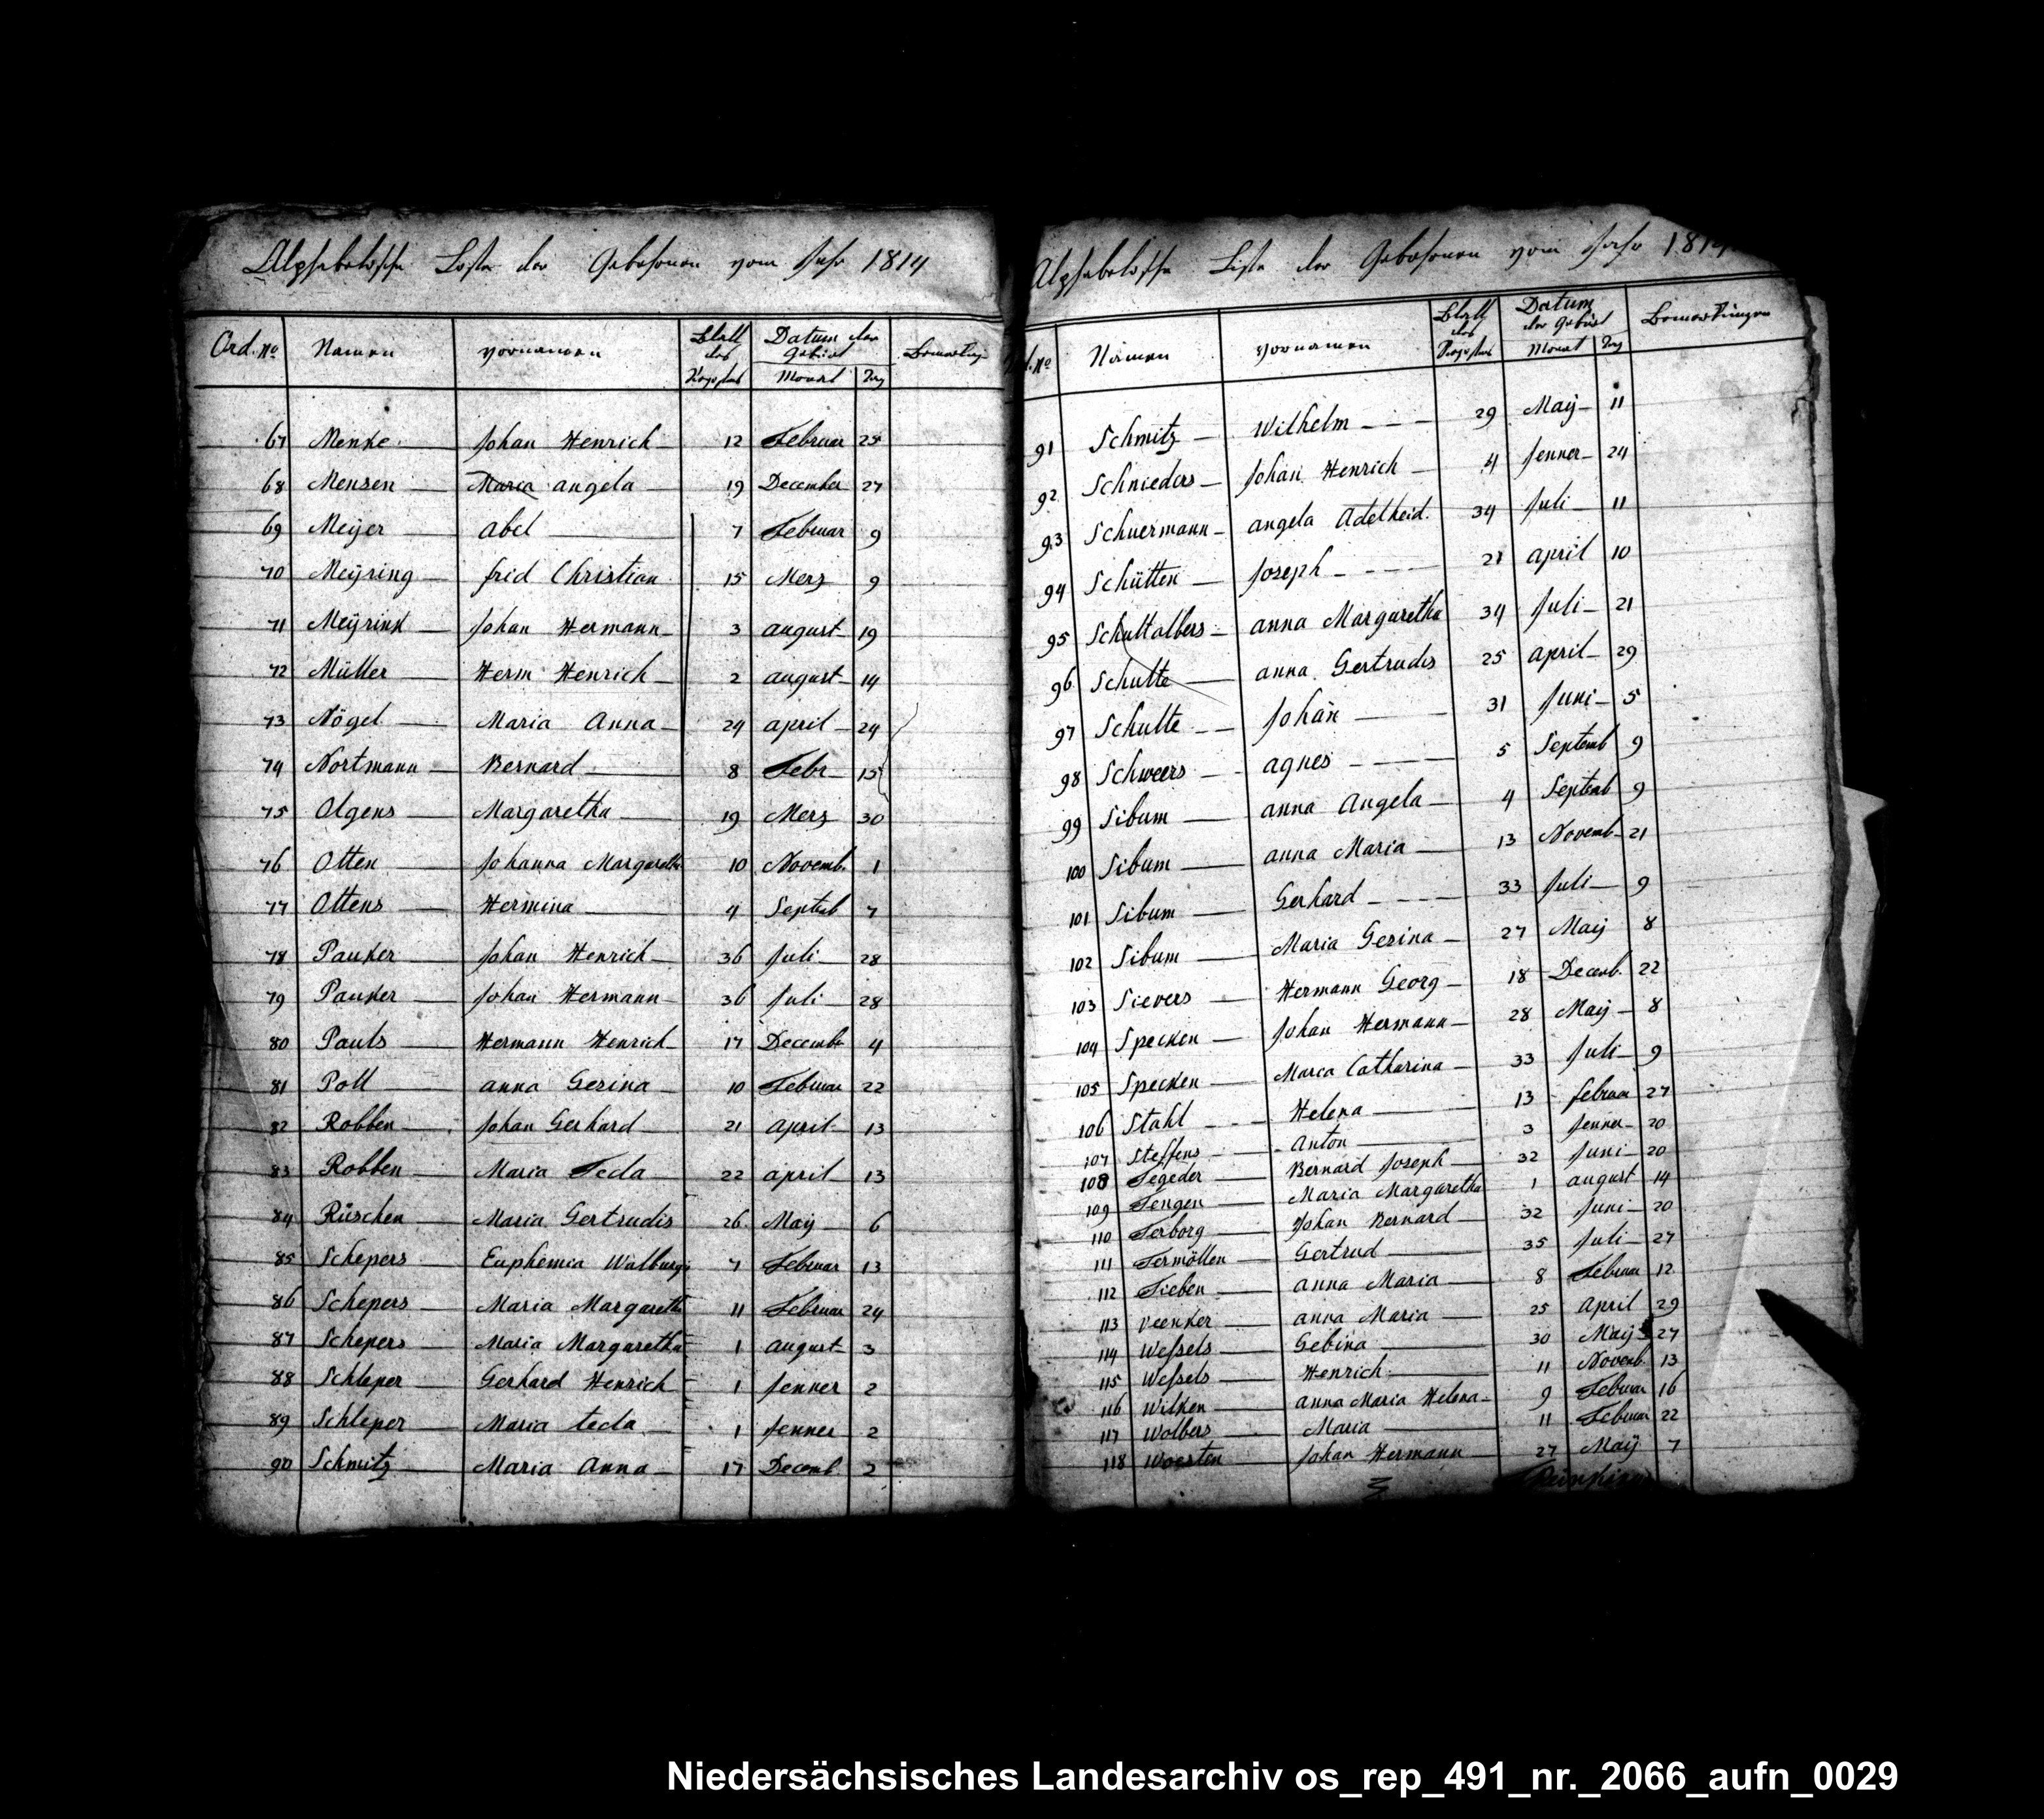 Alphabetische Liste der Gebohrnen vom Jahr 1814
Ord. No Namen Vornamen Blatt des Registers Datum der Geburt Monat Tag Bemerkung
67 Menke Johan Henrich 12 Februar 25
68 Mensen Maria angela 19 December 27
69 Meÿer Abel 7 Februar 9
70 Meÿring frid Christian 15 Merz 9
71 Meÿrink Johan Hermann 3 august 19
72 Müller Herm Henrich 2 august 14
73 Nögel Maria Anna 24 april 24
74 Nortmann Bernard 8 Febr 15
75 Olgens Margaretha 19 Merz 30
76 Otten Johanna Margaretha 10 Novemb. 1
77 Ottens Hermina 4 Septeb 7
78 Pauker Johan Henrich 36 Juli 28
79 Pauker Johan Hermann 36 Juli 28
80 Pauls Hermann Henrich 17 Decembr 4
81 Poll anna Gesina 10 Februar 22
82 Robben Johan Gerhard 21 april 13
83 Robben Maria Tecla 22 april 13
84 Rüschen Maria Gertrudis 26 Maÿ 6
85 Schepers Euphemia Walburgis 7 Februar 13
86 Schepers Maria Margareth 11 Februar 24
87 Schepers Maria Margaretha 1 august 3
88 Schleper Gerhard Henrich 1 Jenner 2
89 Schleper Maria tecla 1 Jenner 2
90 Schmitz Maria Anna 17 Decemb 2
Alphabetische Liste der Gebohrnen vom Jahr 1814
Ord. No Namen Vornamen Blatt des Registers Datum der Geburt Monat Tag Bemerkungen
91 Schmitz Wilhelm 29 Maÿ 11
92 Schnieders Johan Henrich 4 Jenner 24
93 Schuermann angela Adelheid 34 Juli 11
94 Schütten Joseph 21 april 10
95 Schultalbers anna Margaretha 34 Juli 21
96 Schulte anna Gertrudis 25 april 29
97 Schulte Johan 31 Juni 5
98 Schweers agnes 5 Septemb 9
99 Sibum anna Angela 4 Septemb 9
100 Sibum anna Maria 13 Novemb 21
101 Sibum Gerhard 33 Juli 9
102 Sibum Maria Gesina 27 Maÿ 8
103 Sievers Hermann Georg 18 Decemb. 22
104 Specken Johan Hermann 28 Maÿ 8
105 Specken Marca Catharina 33 Juli 9
106 Stahl Helena 13 februar 27
107 Steffens Anton 3 Jenner 20
108 Tegeder Bernard Joseph 32 Juni 20
109 Tengen Maria Margaretha 1 august 14
110 Terborg Johan Bernard 32 Juni 20
111 Termöllen Gertrud 35 Juli 27
112 Tieben anna Maria 8 Februar 12
113 Veenker anna Maria 25 April 29
114 Weßels Gebina 30 Maÿ 27
115 Weßels Henrich 11 Novemb. 13
116 Wilken anna Maria Helena 9 Februar 16
117 Wolbers Maria 11 Februar 22
118 Woesten Johan Hermann 27 Maÿ 7
Niedersächsisches Landesarchiv os_rep_491_nr._2066_aufn_0029